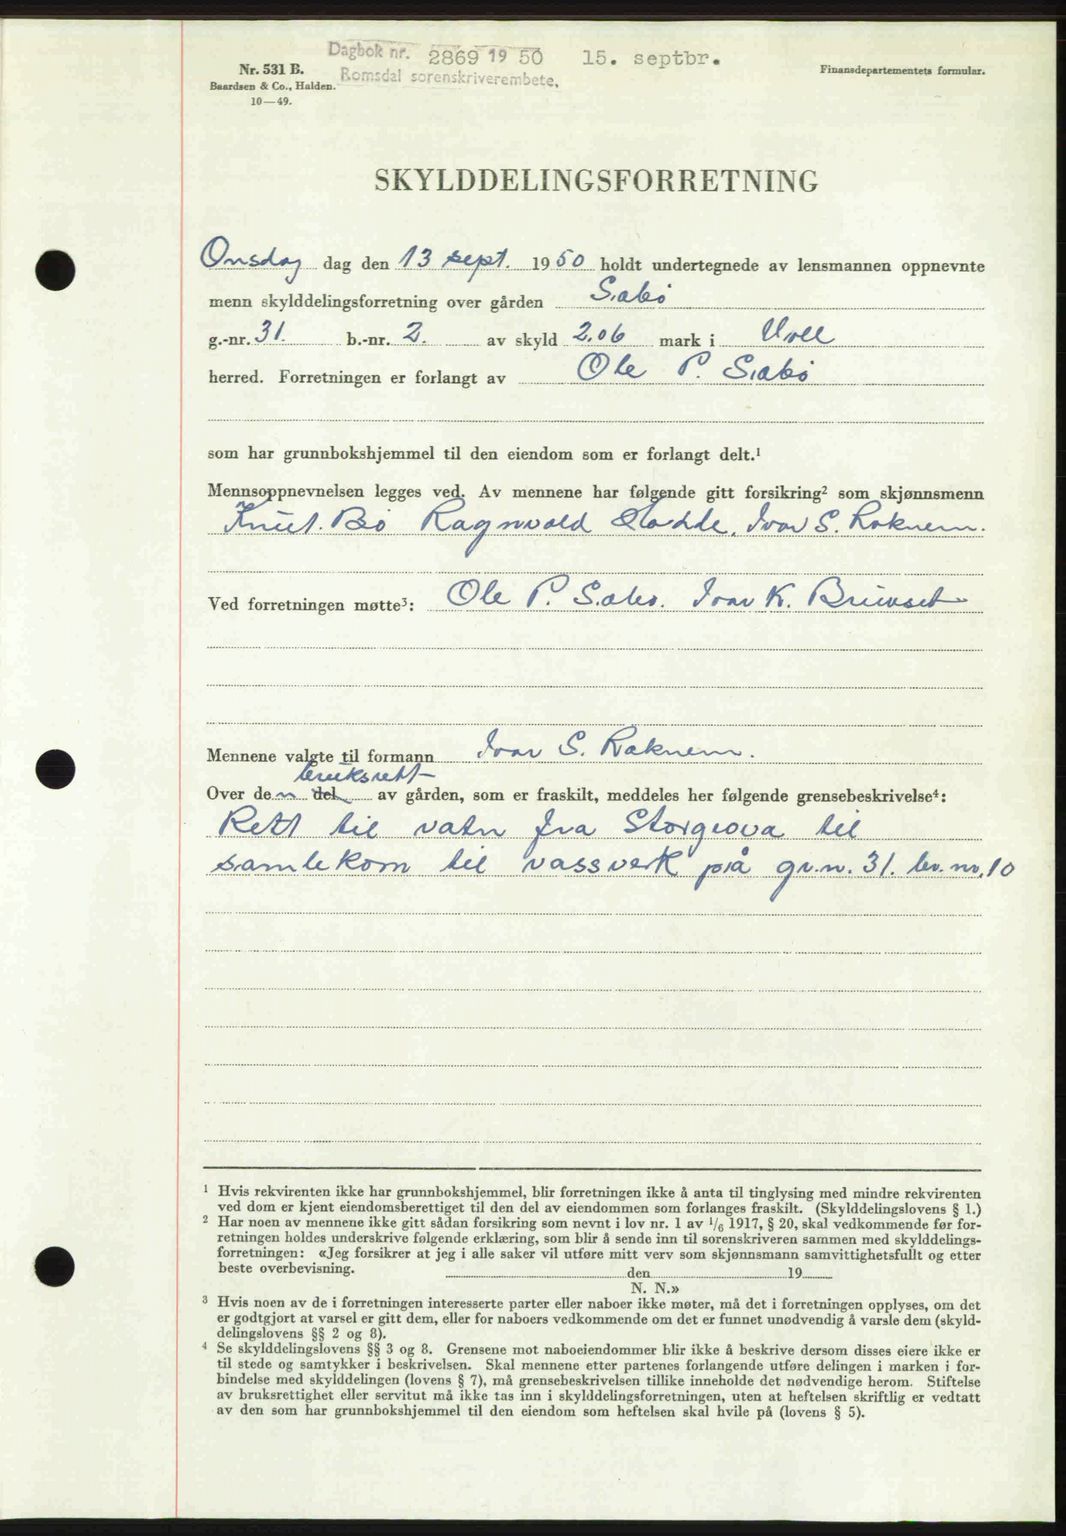 Dagbok nr. 2869 19 50 15. septbr.
Romsdal sorenskriverembete.
Nr. 531 B.
Baardsen & Co., Halden.
10—49.
Finansdepartementets formular.
SKYLDDELINGSFORRETNING
Onsdag dag den 13 sept. 1950 holdt undertegnede av lensmannen oppnevnte
menn skylddelingsforretning over gården Sæbø
g.-nr. 31. b.-nr. 2. av skyld 2.06 mark i
herred. Forretningen er forlangt av Ole P. Sæbø
som har grunnbokshjemmel til den eiendom som er forlangt delt.¹
Mennsoppnevnelsen legges ved. Av mennene har følgende gitt forsikring² som skjønnsmenn
Knut. Bø Ragnvald Ivar S. Raknem.
Ved forretningen møtte³: Ole P. Sæbø. Ivar K. Brunset
Mennene valgte til formann Ivar S. Raknem.
bruksrett
Over den del av gården, som er fraskilt, meddeles her følgende grensebeskrivelse⁴:
Rett til vatn fra Storgrova til
samlekom til vassverk på gr.n. 31. br. nr. 10
¹ Hvis rekvirenten ikke har grunnbokshjemmel, blir forretningen ikke å anta til tinglysing med mindre rekvirenten
ved dom er kjent eiendomsberettiget til den del av eiendommen som forlanges fraskilt. (Skylddelingslovens § 1.)
² Har noen av mennene ikke gitt sådan forsikring som nevnt i lov nr. 1 av 1/6 1917, § 20, skal vedkommende før for-
retningen holdes underskrive følgende erklæring, som blir å sende inn til sorenskriveren sammen med skylddelings-
forretningen: «Jeg forsikrer at jeg i alle saker vil utføre mitt verv som skjønnsmann samvittighetsfullt og etter
beste overbevisning. den 19
N. N.»
³ Hvis noen av de i forretningen interesserte parter eller naboer ikke møter, må det i forretningen opplyses, om det
er godtgjort at varsel er gitt dem, eller for naboers vedkommende om det er funnet unødvendig å varsle dem (skyld-
delingslovens §§ 2 og 8).
⁴ Se skylddelingslovens §§ 3 og 8. Grensene mot naboeiendommer blir ikke å beskrive dersom disses eiere ikke er
til stede og samtykker i beskrivelsen. Skal mennene etter partenes forlangende utføre delingen i marken i for-
bindelse med skylddelingen (lovens § 7), må grensebeskrivelsen tillike inneholde det nødvendige herom. Stiftelse
av bruksrettighet eller servitut må ikke tas inn i skylddelingsforretningen, uten at heftelsen skriftlig er vedtatt
av den som har grunnbokshjemmel til den eiendom som heftelsen skal hvile på (lovens § 5).